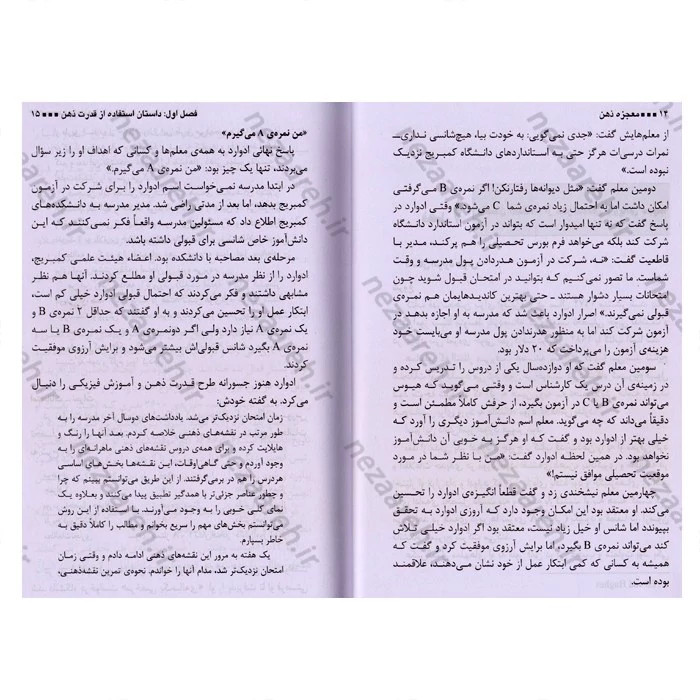 ۱۴ ■■■ معجزه ذهن
از معلم‌هایش گفت: «جدی نمی‌گویی: به خودت بیا، هیچ‌شانسی نداری ـ
نمرات درسی‌ات هرگز حتی به استانداردهای دانشگاه کمبریج نزدیک
نبوده است.»
دومین معلم گفت: «مثل دیوانه‌ها رفتارنکن! اگر نمره‌ی B می‌گرفتی
امکان داشت اما به احتمال زیاد نمره‌ی شما C می‌شود.» وقتی ادوارد در
پاسخ گفت که نه تنها امیدوار است که بتواند در آزمون استاندارد دانشگاه
شرکت کند بلکه می‌خواهد فرم بورس تحصیلی را هم پرکند، مدیر با
قاطعیت گفت: «نه، شرکت در آزمون هدردادن پول مدرسه و وقت
شماست. ما تصور نمی‌کنیم که بتوانید در امتحان قبول شوید چون
امتحانات بسیار دشوار هستند ـ حتی بهترین کاندیدهایمان هم نمره‌ی
قبولی نمی‌گیرند.» اصرار ادوارد باعث شد که مدرسه به او اجازه بدهد در
آزمون شرکت کند اما به منظور هدرندادن پول مدرسه او می‌بایست خود
هزینه‌ی آزمون را می‌پرداخت که ۲۰ دلار بود.
سومین معلم گفت که او دوازده‌سال یکی از دروس را تدریس کرده و
در زمینه‌ی آن درس یک کارشناس است و وقتی می‌گوید که هیوس
می‌تواند نمره‌ی B یا C در آزمون بگیرد، از حرفش کاملاً مطمئن است و
دقیقاً می‌داند که چه می‌گوید. معلم اسم دانش‌آموز دیگری را آورد که
خیلی بهتر از ادوارد بود و گفت که او هرگز به خوبی آن دانش‌آموز
نخواهد بود. در همین لحظه ادوارد گفت: «من با نظر شما در مورد
موقعیت تحصیلی موافق نیستم!»
چهارمین معلم نیشخندی زد و گفت قطعاً انگیزه‌ی ادوارد را تحسین
می‌کند. او معتقد بود این امکان وجود دارد که آرزوی ادوارد به تحقق
بپیوندد اما شانس او خیل زیاد نیست، معتقد بود اگر ادوارد خیلی تلاش
کند می‌تواند نمره‌ی B بگیرد، اما برایش آرزوی موفقیت کرد و گفت که
همیشه به کسانی که کمی ابتکار عمل از خود نشان می‌دهند، علاقمند
بوده است.
فصل اول: داستان استفاده از قدرت ذهن ■■■ ۱۵
«من نمره‌ی A می‌گیرم»
پاسخ نهائی ادوارد به همه‌ی معلم‌ها و کسانی که اهداف او را زیر سؤال
می‌بردند، تنها یک چیز بود: «من نمره‌ی A می‌گیرم.»
در ابتدا مدرسه نمی‌خواست اسم ادوارد را برای شرکت در آزمون
کمبریج بدهد، اما بعد از مدتی راضی شد. مدرسه به دانشکده‌های
کمبریج اطلاع داد که مسئولین مدرسه واقعاً فکر نمی‌کنند که این
دانش‌آموز خاص شانسی برای قبولی داشته باشد.
مرحله‌ی بعد مصاحبه با دانشکده بود. اعضاء هیئت علمی کمبریج،
ادوارد را از نظر مدرسه در مورد قبولی او مطلع کردند. آنها هم نظر
مشابهی داشتند و فکر می‌کردند که احتمال قبولی ادوارد خیلی کم است،
ابتکار عمل او را تحسین می‌کردند و به او گفتند که حداقل ۲ نمره‌ی B و
یک نمره‌ی A نیاز دارد ولی اگر دونمره‌ی A و یک نمره‌ی B یا سه
نمره‌ی A بگیرد شانس قبولی‌اش بیشتر می‌شود و برایش آرزوی موفقیت
کردند.
ادوارد هنوز جسورانه طرح قدرت ذهن و آموزش فیزیکی را دنبال
می‌کرد، به گفته خودش:
زمان امتحان نزدیک‌تر می‌شد. یادداشت‌های دوسال آخر مدرسه را به
طور مرتب در نقشه‌های ذهنی خلاصه کردم. بعد آنها را رنگ و
هایلایت کرده و برای همه‌ی دروس نقشه‌های ذهنی ماهرانه‌ای را به
وجود آوردم و حتی گاهی‌اوقات، این نقشه‌ها بخش‌های اساسی
هردرس را هم در برمی‌گرفتند. از این طریق می‌توانستم ببینم که چرا
و چطور عناصر جزئی‌تر با همدگیر تطبیق پیدا می‌کنند و بعلاوه یک
نمای گلی خوبی را به وجود می‌آورند. با استفاده از این روش
می‌توانستم بخش‌های مهم را سریع بخوانم و مطالب را کاملاً دقیق به
خاطر بسپارم.
یک هفته به مرور این نقشه‌های ذهنی ادامه دادم و وقتی زمان
امتحان نزدیک‌تر شد، مدام آنها را خواندم. نحوه‌ی تمرین نقشه‌ذهنی،
nezaareh.ir